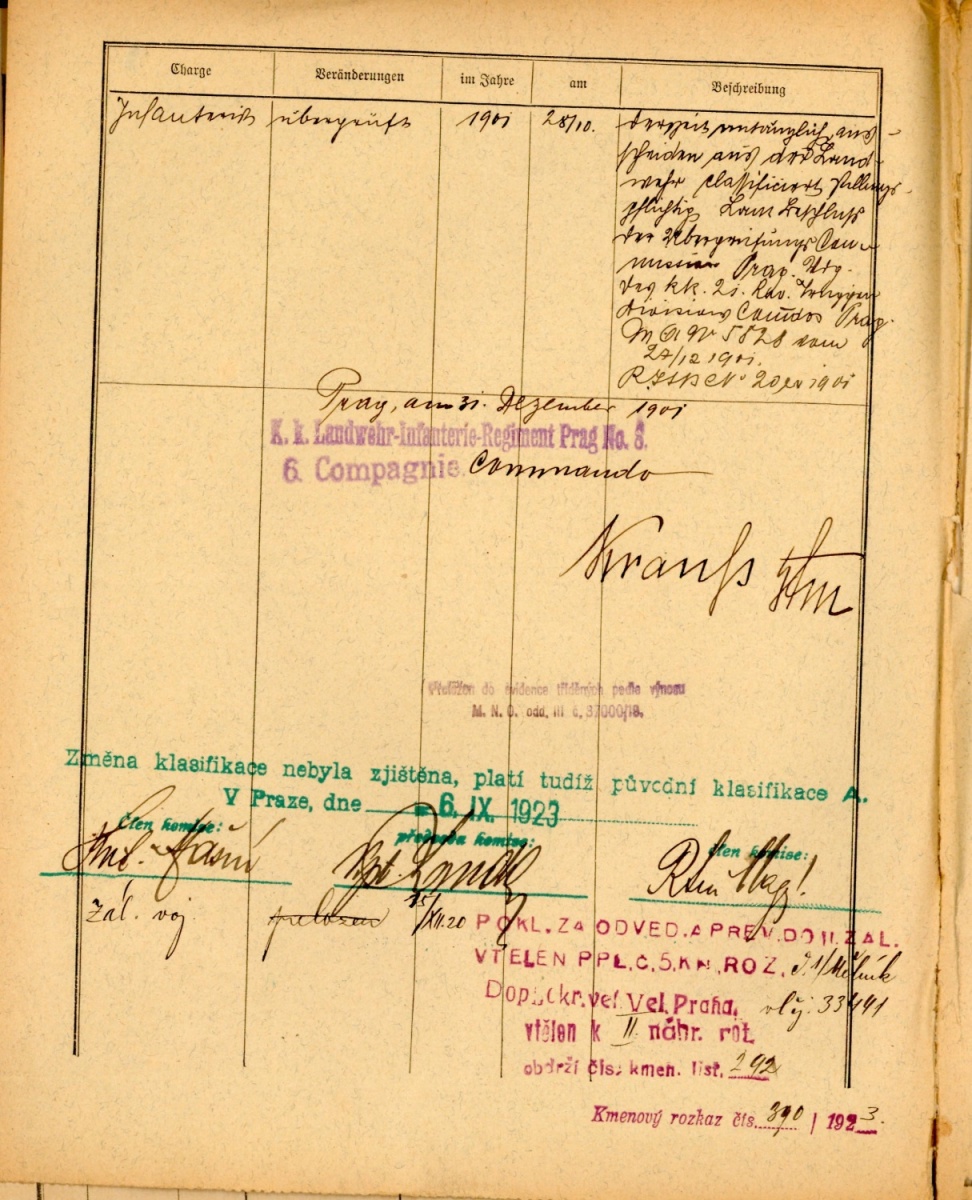 Charge Veränderungen im Jahre am Beschreibung
Infanterist überprüft 1901 28/10. derzeit untauglich, aus-
scheiden aus der Land-
wehr classificiert
pflichtig Beschluß
der Überprüfungs Com-
mission Prag.
des k.k. 21. Lw. Truppen
Division Comdos Prag.
M A No 5828 vom
27/12 1901.
1901
Prag, am 31. Dezember 1901
K. k. Landwehr-Infanterie-Regiment Prag No. 8.
6. Compagnie Commando
Krauß Htm
Přeložen do evidence tříděných podle výnosu
M. N. O. odd. III č. 37000/18.
Změna klasifikace nebyla zjištěna, platí tudíž původní klasifikace A.
V Praze, dne 6. IX. 1923
člen komise: předseda komise: člen komise:
zál. voj. přeložen 15/XII.20
POKL. ZA ODVED. A PREV. DO II. ZAL.
VTELEN PPL. C. 5. KN. ROZ. Mělník
Dopl. okr. vel. Vel. Praha.
vtělen k II. náhr. rot.
obdrží čís. kmen. list. 292
Kmenový rozkaz čís. 390 / 1923.